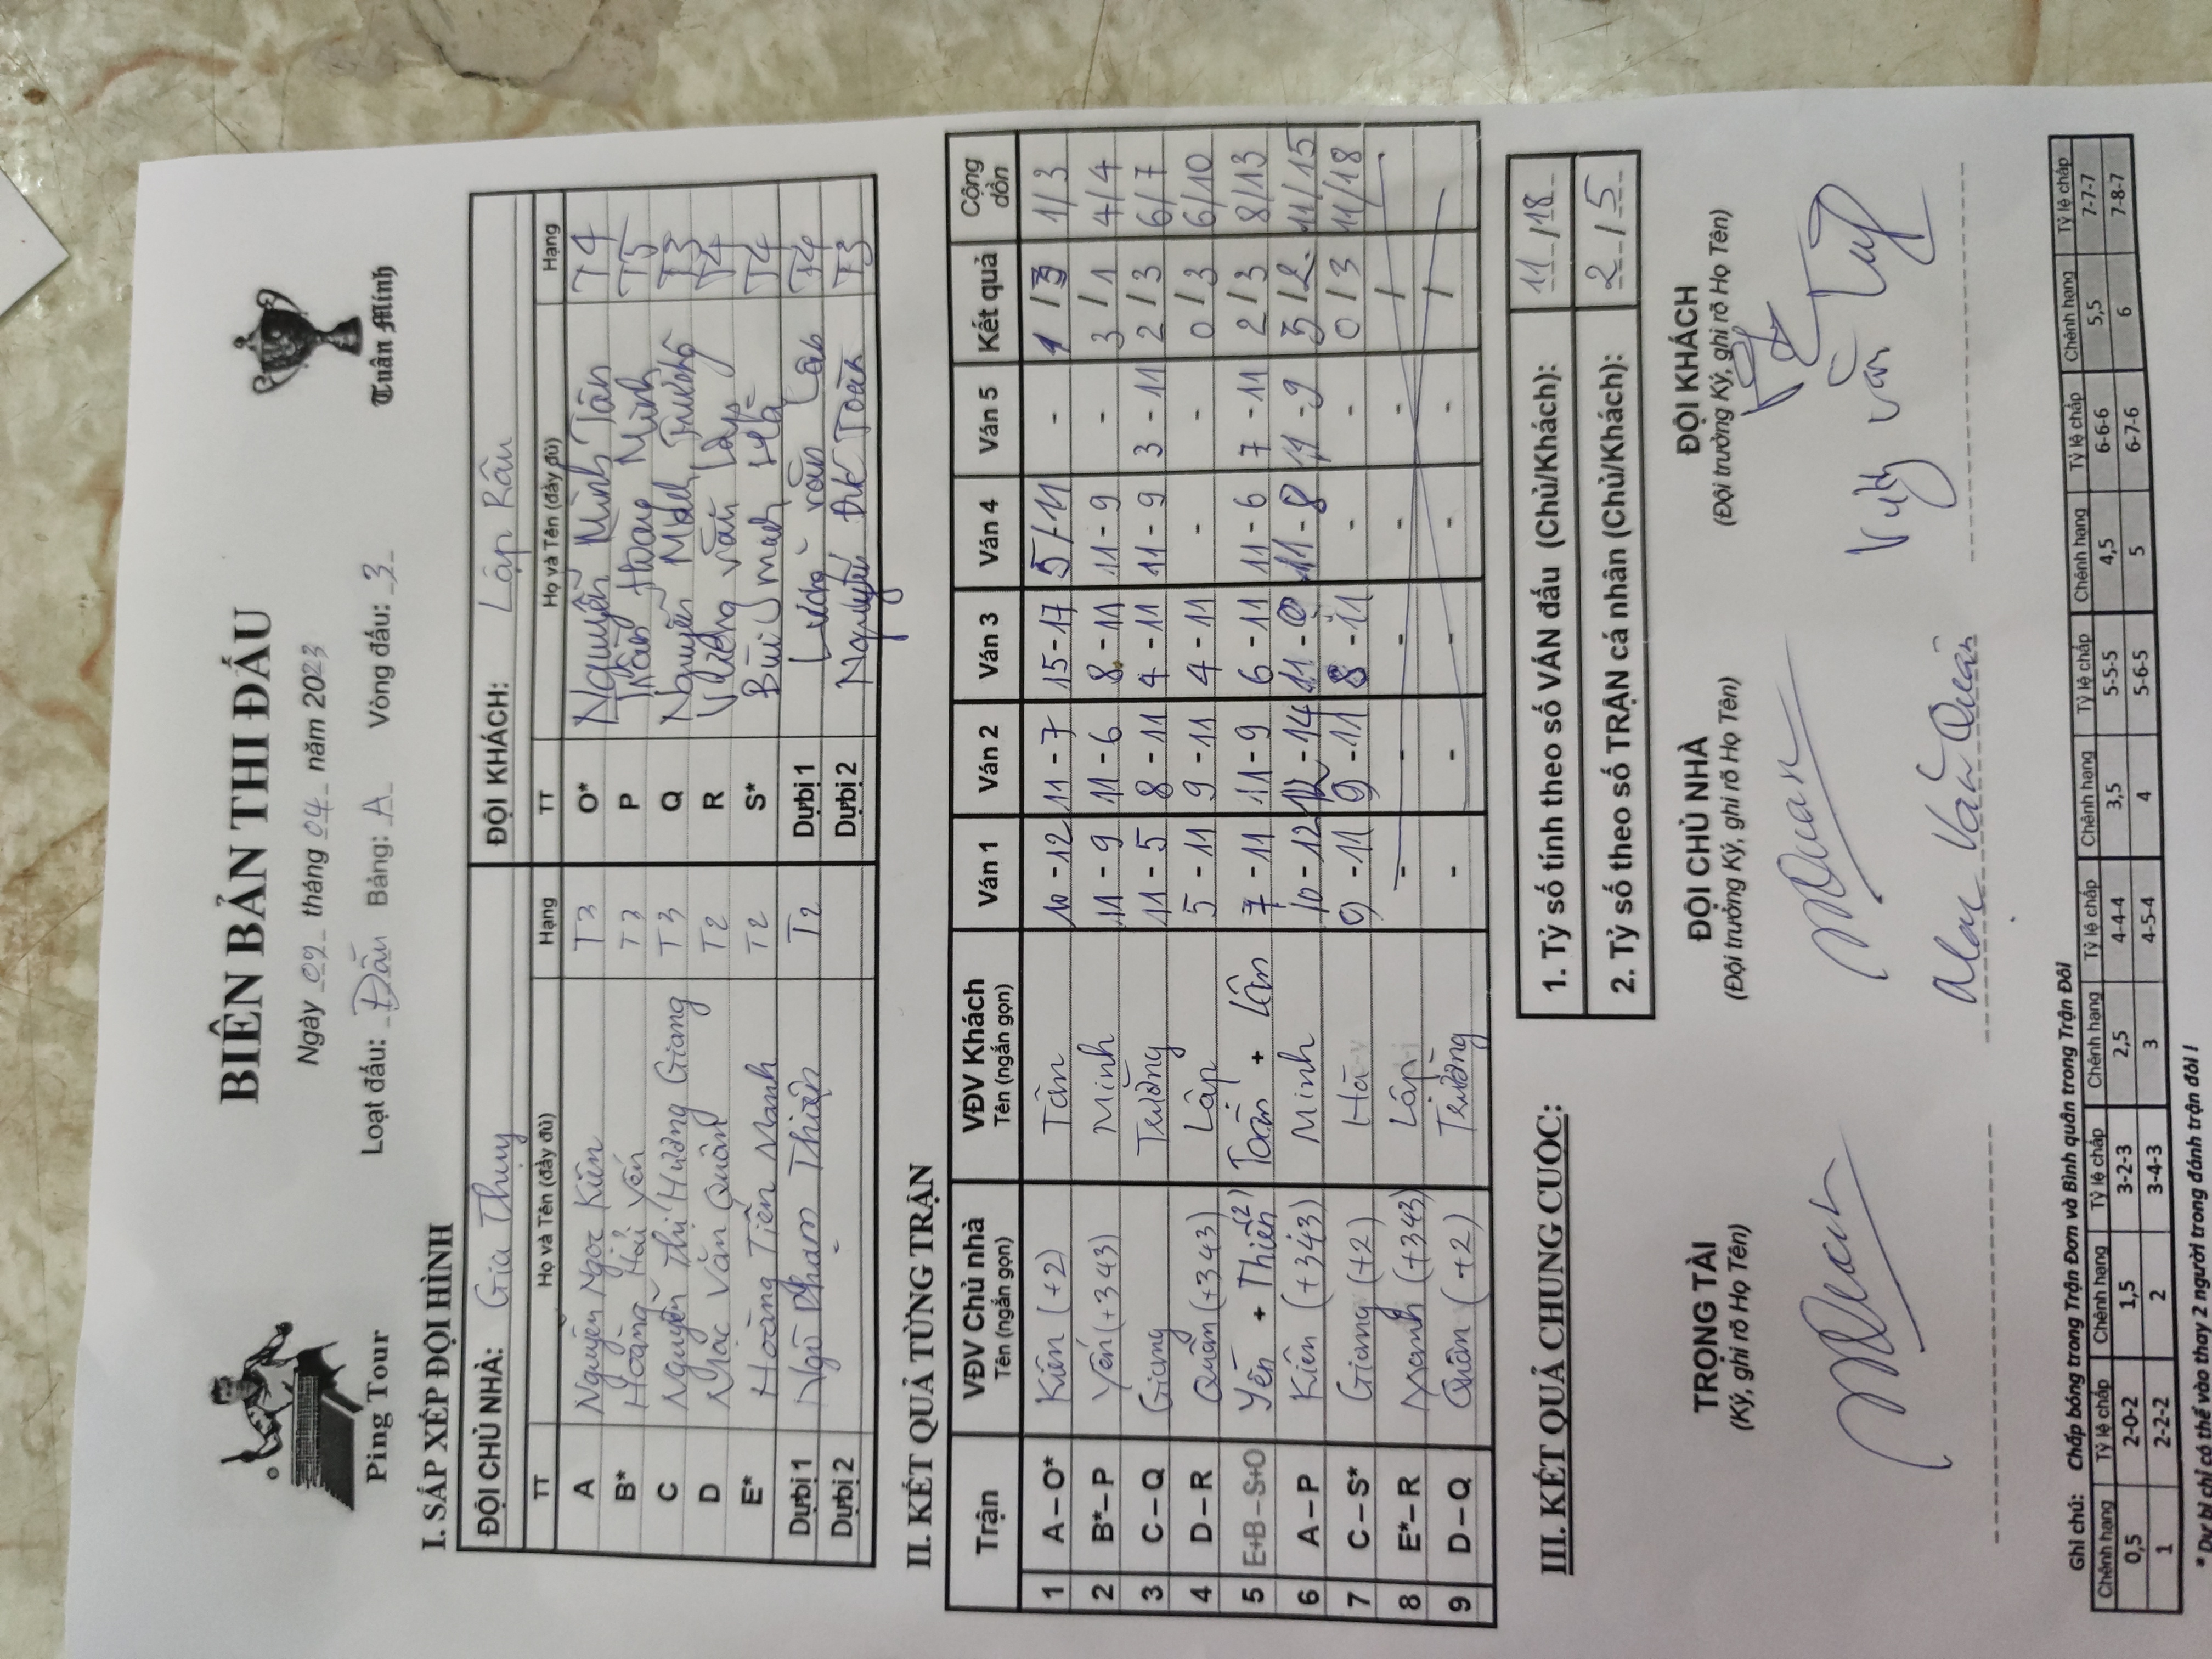 BIÊN BẢN THI ĐẤU
Ping Tour
Tuân Minh
Ngày 02 tháng 04 năm 2023
Loạt đấu: Đấu Bảng: A Vòng đấu: 3
I. SẮP XẾP ĐỘI HÌNH
ĐỘI CHỦ NHÀ: Gia Thụy ĐỘI KHÁCH: Lập Rân
TT Họ và Tên (đầy đủ) Hạng TT Họ và Tên (đầy đủ) Hạng
A Nguyễn Ngọc Kiên T3 O* Nguyễn Minh Tân T4
B* Hoàng Hải Yến T3 P Trần Hoàng Minh T5
C Nguyễn Thị Hương Giang T3 Q Nguyễn Mạnh Trường T3
D Mạc Văn Quân T2 R Vương Văn Lập T4
E* Hoàng Tiến Mạnh T2 S* Bùi Mạnh Hà T4
Dự bị 1 Ngô Phạm Thiện T2 Dự bị 1 văn Lân T4
Dự bị 2 Dự bị 2 Nguyễn Đức Toàn T3
II. KẾT QUẢ TỪNG TRẬN
Trận VĐV Chủ nhà Tên (ngắn gọn) VĐV Khách Tên (ngắn gọn) Ván 1 Ván 2 Ván 3 Ván 4 Ván 5 Kết quả Cộng dồn
1 A – O* Kiên (+2) Tân 10 - 12 11 - 7 15 - 17 5 - 11 - 1 / 3 1/3
2 B* – P Yến (+343) Minh 11 - 9 11 - 6 8 - 11 11 - 9 - 3 / 1 4/4
3 C – Q Giang Trường 11 - 5 8 - 11 4 - 11 11 - 9 3 - 11 2 / 3 6/7
4 D – R Quân (+343) Lập 5 - 11 9 - 11 4 - 11 - - 0 / 3 6/10
5 E+B – S+O Yến + Thiện (2) Toàn + Lân 7 - 11 11 - 9 6 - 11 11 - 6 7 - 11 2 / 3 8/13
6 A – P Kiên (+343) Minh 10 - 12 12 - 14 11 - 9 11 - 8 11 - 9 3 / 2 11/15
7 C – S* Giang (+2) Hà 9 - 11 9 - 11 8 - 11 - - 0 / 3 11/18
8 E* – R Mạnh (+343) Lập - - - - - /
9 D – Q Quân (+2) Trường - - - - - /
III. KẾT QUẢ CHUNG CUỘC:
1. Tỷ số tính theo số VÁN đấu (Chủ/Khách): 11 / 18
2. Tỷ số theo số TRẬN cá nhân (Chủ/Khách): 2 / 5
TRỌNG TÀI ĐỘI CHỦ NHÀ ĐỘI KHÁCH
(Ký, ghi rõ Họ Tên) (Đội trưởng Ký, ghi rõ Họ Tên) (Đội trưởng Ký, ghi rõ Họ Tên)
Mạc Văn Quân
Ghi chú: Chấp bóng trong Trận Đơn và Bình quân trong Trận Đôi
Chênh hạng Tỷ lệ chấp Chênh hạng Tỷ lệ chấp Chênh hạng Tỷ lệ chấp Chênh hạng Tỷ lệ chấp Chênh hạng Tỷ lệ chấp Chênh hạng Tỷ lệ chấp
0,5 2-0-2 1,5 3-2-3 2,5 4-4-4 3,5 5-5-5 4,5 6-6-6 5,5 7-7-7
1 2-2-2 2 3-4-3 3 4-5-4 4 5-6-5 5 6-7-6 6 7-8-7
* Dự bị chỉ có thể vào thay 2 người trong đánh trận đôi !